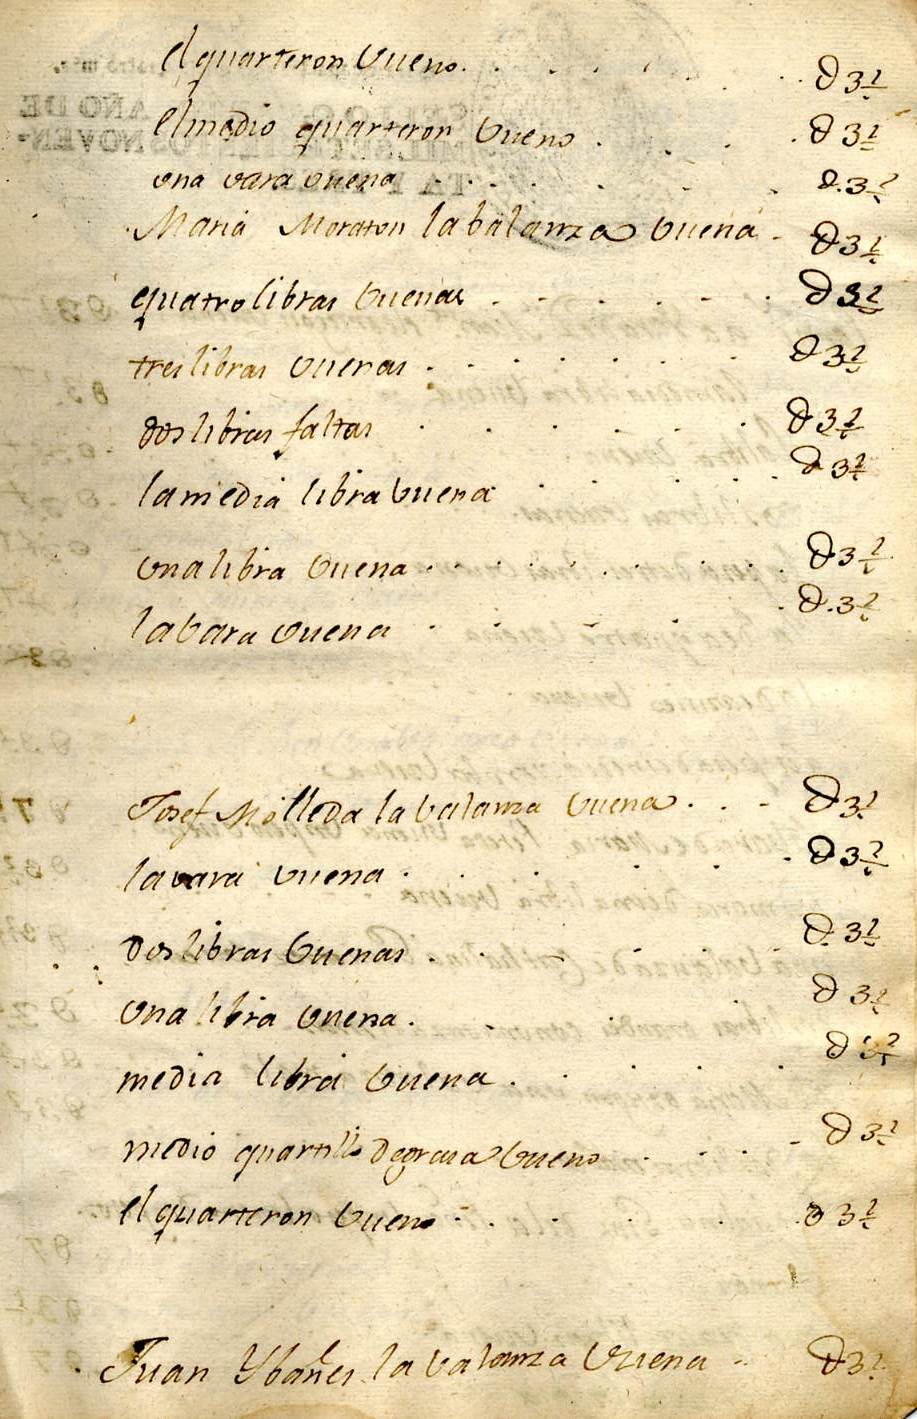 el quarteron bueno. . . . . . . D 3 1/2
el medio quarteron bueno . . . . D 3 1/2
una vara buena . . . . . . D. 3 1/2
Maria Moraton la balanza buena - D 3 1/2
quatro libras buenas . . . . . . D 3 1/2
tres libras buenas . . . . . . D 3 1/2
dos libras faltas . . . . . . D 3 1/2
la media libra buena . . . . . D 3 1/2
una libra buena . . . . . . . D 3 1/2
la bara buena . . . . . . D. 3 1/2
Josef Molleda la balanza buena . . - D 3 1/2
la vara buena . . . . . . D 3 1/2
dos libras buenas . . . . . . D 3 1/2
una libra buena . . . . . . D 3 1/2
media libra buena . . . . . . D 3 1/2
medio quartillo de grasa bueno . . . . - D 3 1/2
el quarteron bueno . . . . . . D 3 1/2
Juan Ybañes la balanza buena - D 3 1/2